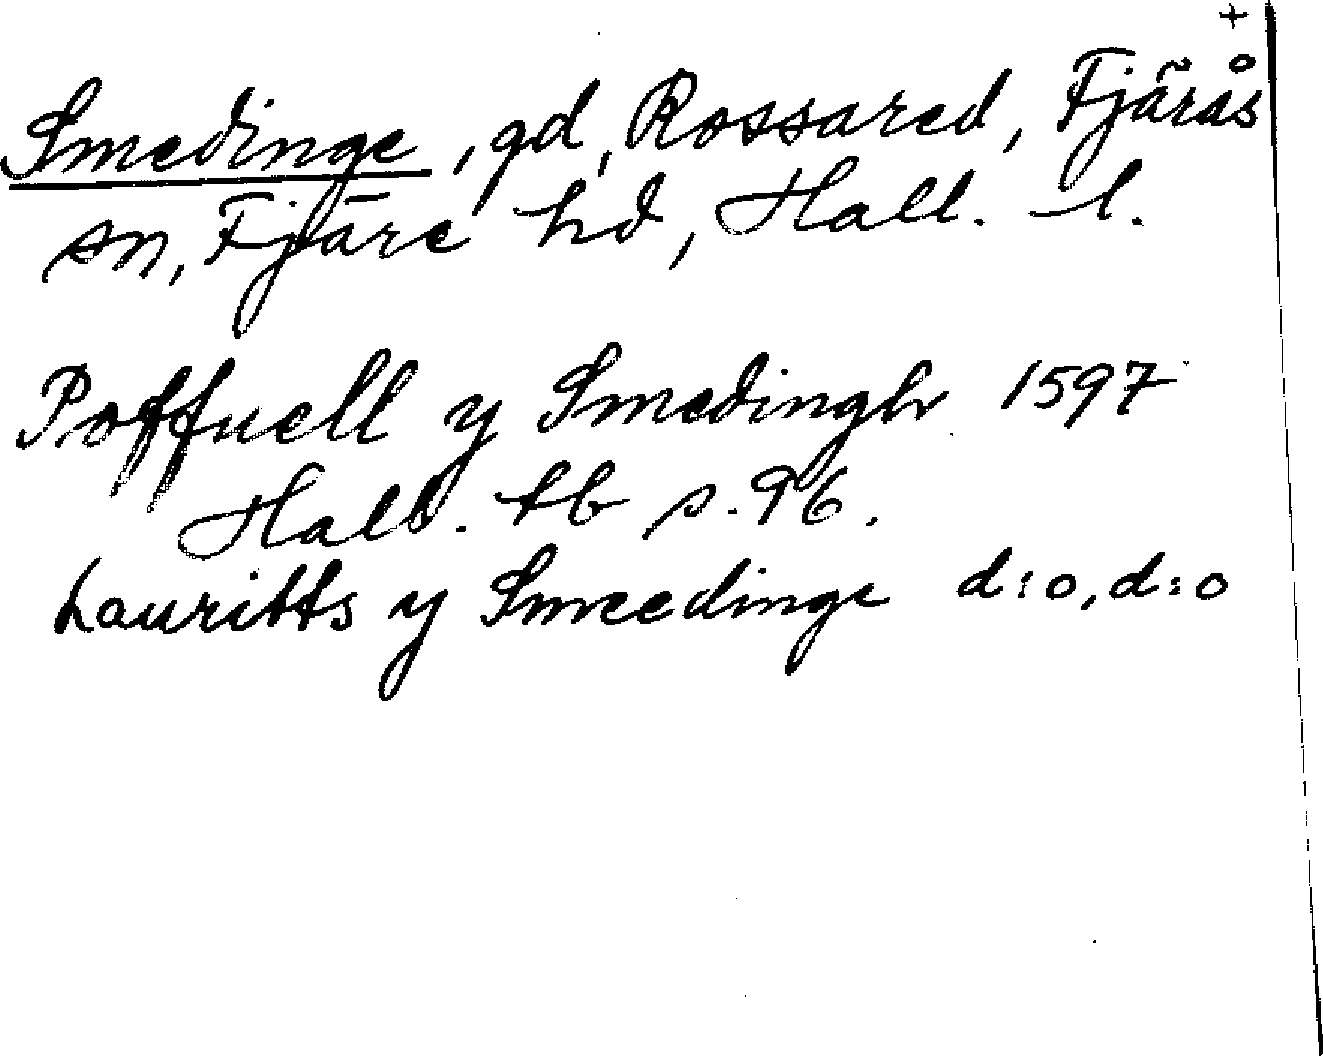 +
Smedinge, gd, Rossared, Fjärås
sn, Fjäre hd, Hall. l.
Poffuell y Smedingh 1597
Hall. tb s. 96.
Lauritts y Smeedinge d:o, d:o